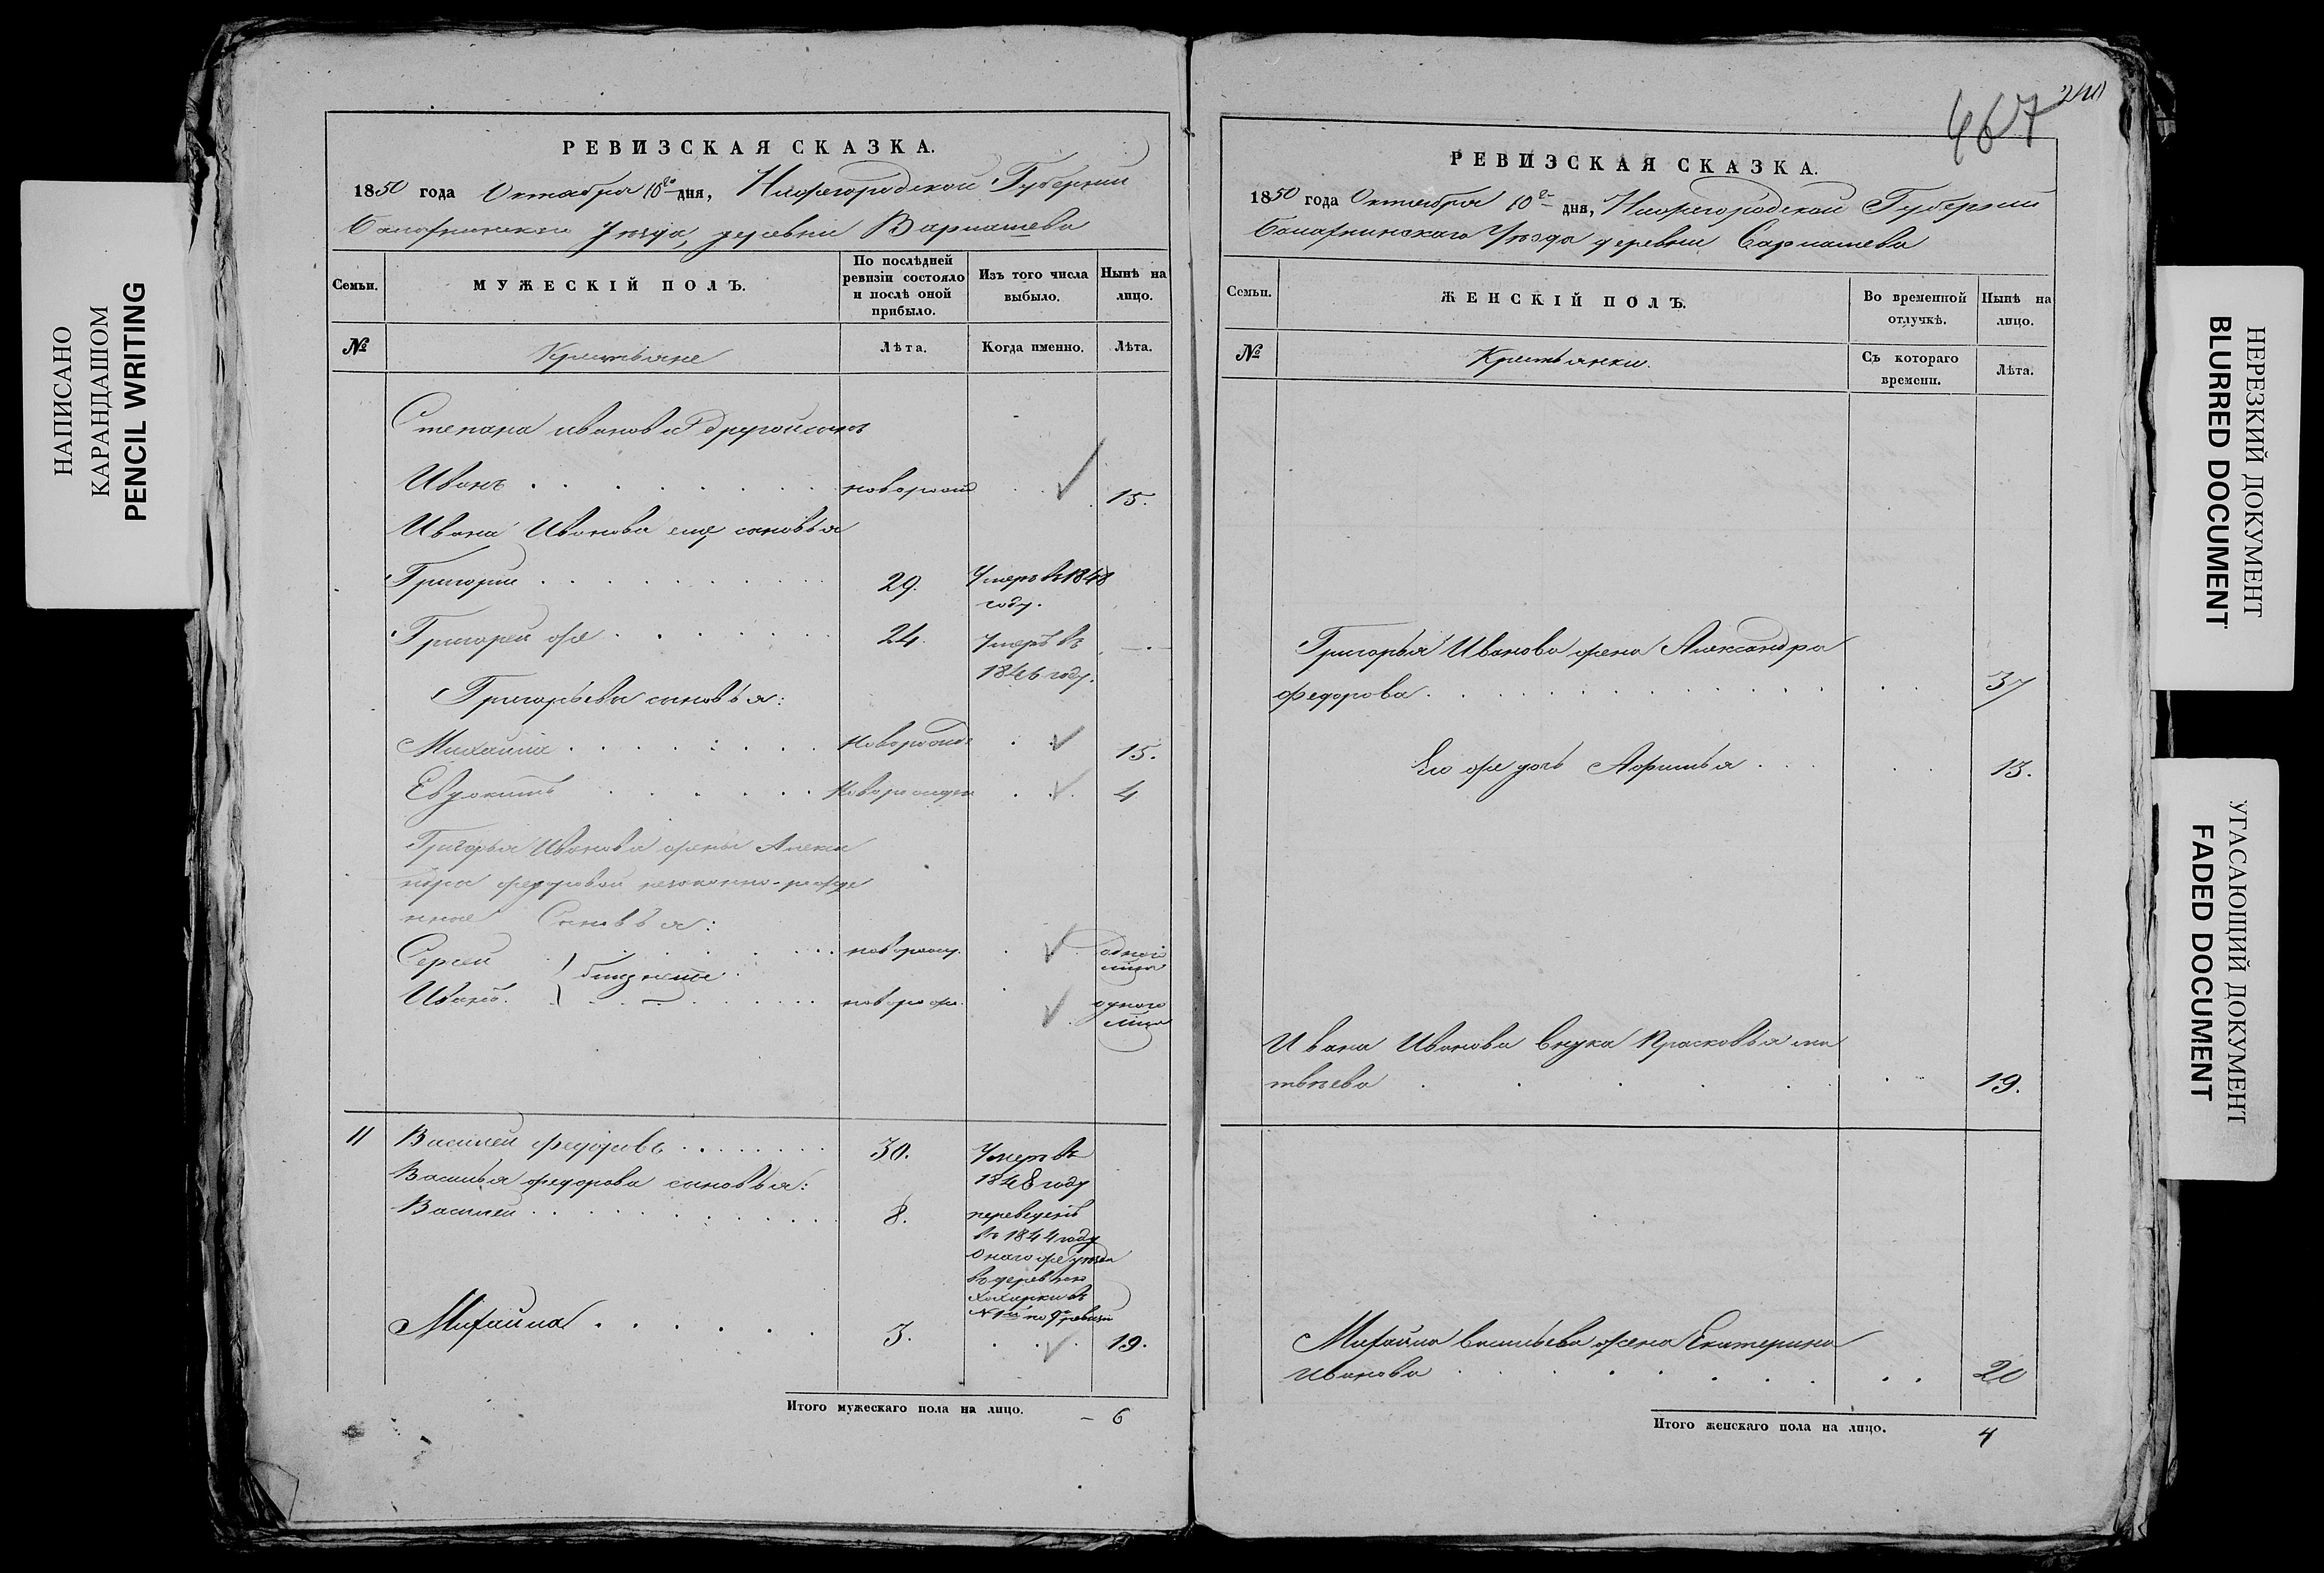 НАПИСАНО
КАРАНДАШОМ
PENCIL WRITING
РЕВИЗСКАЯ СКАЗКА.
1850 года Октября 10го дня, Нижегородской Губернии
Уезда, деревни Варнашева
Семьи.
МУЖЕСКІЙ ПОЛЪ.
По послѣдней ревизіи состояло и послѣ оной прибыло.
Изъ того числа выбыло.
Нынѣ на лицо.
№
Крестьяне
Лѣта.
Когда именно.
Лѣта.
Степана иванова другой сынъ
Иванъ новорожд 15.
Ивана Иванова еще сыновья
Григории 29. Умеръ въ 1848
году.
Григорей же 24. Умеръ въ
1846 году.
Григорьевы сыновья:
Михаила новорожд 15.
Евдокимъ новорожден 4
Григорья Иванова жены Алекса
ндры федоровой незаконно-рожде
нные Сыновья:
Сергей новорожд. одного
близнецы
Иванъ. новорож. одного
11 Василеи федоровъ 30. Умеръ въ
1848 году
Василья федорова сыновья:
Василеи 8. переведенъ
въ 1844 году
оного же уезда
въ деревню
№ 1й по 9й ревизіи
Михаила 3. 19.
Итого мужескаго пола на лицо. - 6
467
240
РЕВИЗСКАЯ СКАЗКА.
1850 года Октября 10го дня, Нижегородской Губернии
Уезда деревни Варнашева
Семьи.
ЖЕНСКІЙ ПОЛЪ.
Во временной отлучкѣ.
Нынѣ на лицо.
№
Крестьянки.
Съ котораго времени.
Лѣта.
Григорья Иванова жена Александра
федорова 37
Его же дочь 13.
Ивана Иванова внука Прасковья ма
твѣева 19.
Михайла васильева жена Екатерина
Иванова 20
Итого женскаго пола на лицо. 4
НЕРЕЗКИЙ ДОКУМЕНТ
BLURRED DOCUMENT
УГАСАЮЩИЙ ДОКУМЕНТ
FADED DOCUMENT